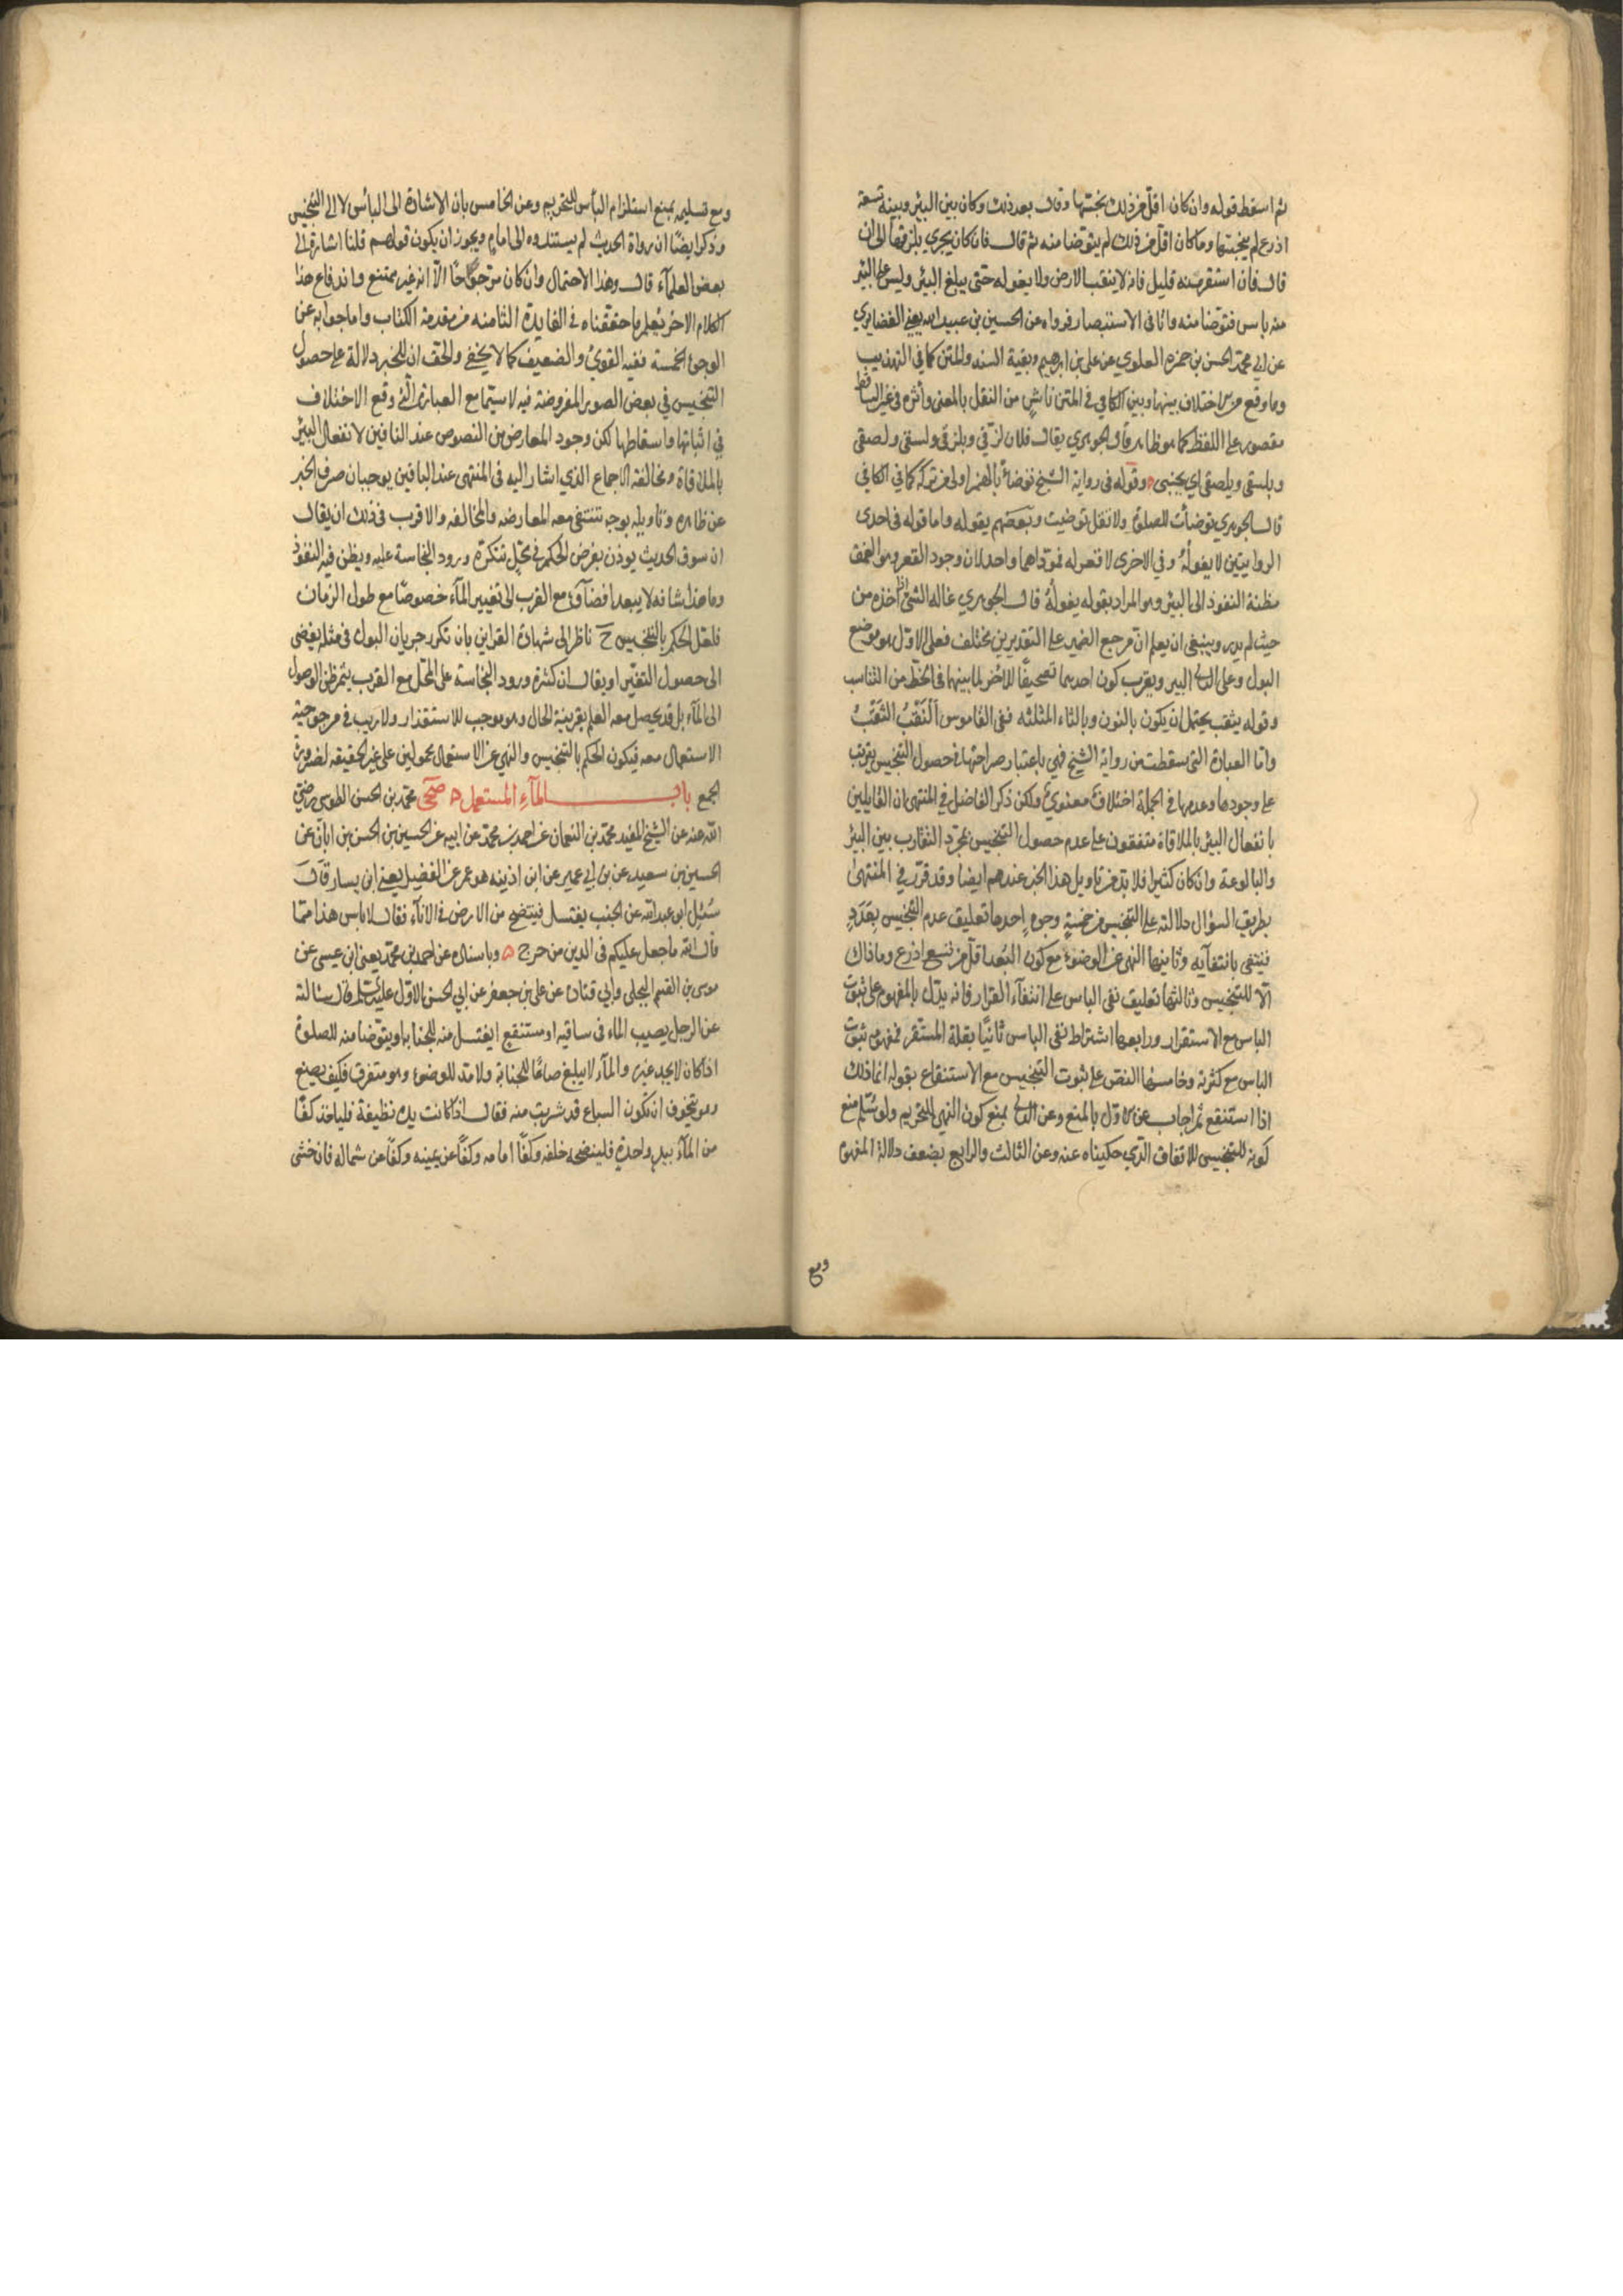 ثم اسقط قوله وان كان اقل من ذلك نجستها وقال بعد ذلك وكان بين البئر وبينه تسعة
اذرع لم ينجستها وما كان اقل من ذلك لم يتوضا منه ثم قال فان كان يجري بلزقها الى ان
قال فان استقر منه قليل فانه لا ينقب الارض ولا يغوله حتى يبلغ البئر وليس على البئر
منه باس فتوضا منه واما في الاستبصار فرواه عن الحسين بن عبيد الله يعني الغضايري
عن ابي محمد الحسن بن حمزه العلوي عن علي بن ابرهيم وبقية السند والمتن كما في التهذيب
وما وقع من اختلاف بينهما وبين الكافي في المتن ناش من النقل بالمعنى واثره في غير الساقط
مقصور على اللفظ كما هو ظاهر قال الجوهري يقال فلان لزقي وبلزقي ولسقي ولصقي
وبلسقي وبلصقي اي بجنبي ه وقوله في رواية الشيخ توضأ بالهمز اولى من تركه كما في الكافي
قال الجوهري توضأت للصلوة ولا تقل توضيت وبعضهم يقوله واما قوله في احدى
الروايتين لا يغوله وفي الاخرى لا قعر له فمؤداهما واحد لان وجود القعر وهو العمق
مظنة النفوذ الى البئر وهو المراد بقوله يغوله قال الجوهري غاله الشئ اذا اخذه من
حيث لم يدر وينبغي ان يعلم ان مرجع الضمير على التقديرين مختلف فعلى الاول هو موضع
البول وعلى الثاني البير ويقرب كون احدهما تصحيفا للاخر لما بينهما في الخط من التناسب
وقوله يثقب يحتمل ان يكون بالنون وبالثاء المثلثه ففي القاموس النقب الثقب
واما العبارة التي سقطت من رواية الشيخ فهي باعتبار صراحتها في حصول التنجيس يترتب
على وجودها وعدمها في الجملة اختلاف معنوي ولكن ذكر الفاضل في المنتهى ان القايلين
بانفعال البئر بالملاقاة متفقون على عدم حصول التنجيس بمجرد التقارب بين البئر
والبالوعة وان كان كثيرا فلا بد من تاويل هذا الخبر عندهم ايضا وقد قرر في المنتهى
بطريق السؤال دلالته على التنجيس من خمسة وجوه احدها تعليق عدم التنجيس بعدد
فينتفي بانتفآيه وثانيها النهي عن الوضوء مع كون البعد اقل من تسع اذرع وما ذاك
الا للتنجيس وثالثها تعليق نفي الباس على انتفآء القرار فانه يدل بالمفهوم على ثبوت
الباس مع الاستقرار ورابعها اشتراط نفي الباس ثانيا بقلة المستقر فمفهومه ثبوت
الباس مع كثرته وخامسها النص على ثبوت التنجيس مع الاستنقاع بقوله انما ذلك
اذا استنقع ثم اجاب عن الاول بالمنع وعن الثاني بمنع كون النهي للتحريم ولو سلم منع
كونه للتنجيس للاتفاق الذي حكيناه عنه وعن الثالث والرابع بضعف دلالة المفهوم
ومع
ومع تسليمه بمنع استلزام الباس للتحريم وعن الخامس بان الاشارة الى الباس لا الى التنجيس
وذكر ايضا ان رواة الحديث لم يسندوه الى امام ويجوز ان يكون قولهم قلنا اشارة الى
بعض العلمآء قال وهذا الاحتمال وان كان مرجوحا الا انه غير ممتنع واندفاع هذا
الكلام الاخر يعلم ما حققناه في الفايدة الثامنه من مقدمة الكتاب واما جوابه عن
الوجوه الخمسة ففيه القوي والضعيف كما لا يخفى والحق ان للخبر دلالة على حصول
التنجيس في بعض الصور المفروضة فيه لا سيما مع العبارة التي وقع الاختلاف
في اثباتها واسقاطها لكن وجود المعارض من النصوص عند النافين لانفعال البئر
بالملاقاة ومخالفة الاجماع الذي اشار اليه في المنتهى عند الباقين يوجبان صرف الخبر
عن ظاهره وتاويله بوجه تنتفي معه المعارضه والمخالفه والاقرب في ذلك ان يقال
ان سوق الحديث يوذن بفرض الحكم في محل تتكرر ورود النجاسة عليه ويظن فيه النفوذ
وما هذا شانه لا يبعد افضآؤه مع القرب الى تغيير المآء خصوصا مع طول الزمان
فلعل الحكم بالتنجيس ح ناظر الى شهادة القراين بان تكرر جريان البول في مثله يفضي
الى حصول التغير او يقال ان كثرة ورود النجاسة على المحل مع القرب يثمر ظن الوصول
الى المآء بل قد يحصل معه العلم بقرينة الحال وهو موجب للاستقذار ولا ريب في مرجوحية
الاستعمال معه فيكون الحكم بالتنجيس والنهي عن الاستعمال محمولين على غير الحقيقه لضرورة
الجمع باب المآء المستعمل ه صحى محمد بن الحسن الطوسي رضي
الله عنه عن الشيخ المفيد محمد بن النعمان عن احمد بن محمد عن ابيه عن الحسين بن الحسن بن ابان عن
الحسين بن سعيد عن بن ابي عمير عن ابن اذينه هو عمر عن الفضيل يعني ابن يسار قال
سئل ابو عبد الله عن الجنب يغتسل فينتضح من الارض في الانآء فقال لا باس هذا مما
قال الله ما جعل عليكم في الدين من حرج ه وباسناده عن احمد بن محمد يعني ابن عيسى عن
موسى بن القسم البجلي وابي قتاده عن علي بن جعفر عن ابي الحسن الاول عليه السلم قال سالته
عن الرجل يصيب الماء في ساقيه او مستنقع ايغتسل منه للجنابه او يتوضا منه للصلوة
اذا كان لا يجد غيره والمآء لا يبلغ صاعا للجنابة ولا مدا للوضوء وهو متفرق فكيف يصنع
وهو يتخوف ان تكون السباع قد شربت منه فقال اذا كانت يده نظيفة فلياخذ كفا
من المآء بيد واحدة فلينضحه خلفه وكفا امامه وكفا عن يمينه وكفا عن شماله فان خشى